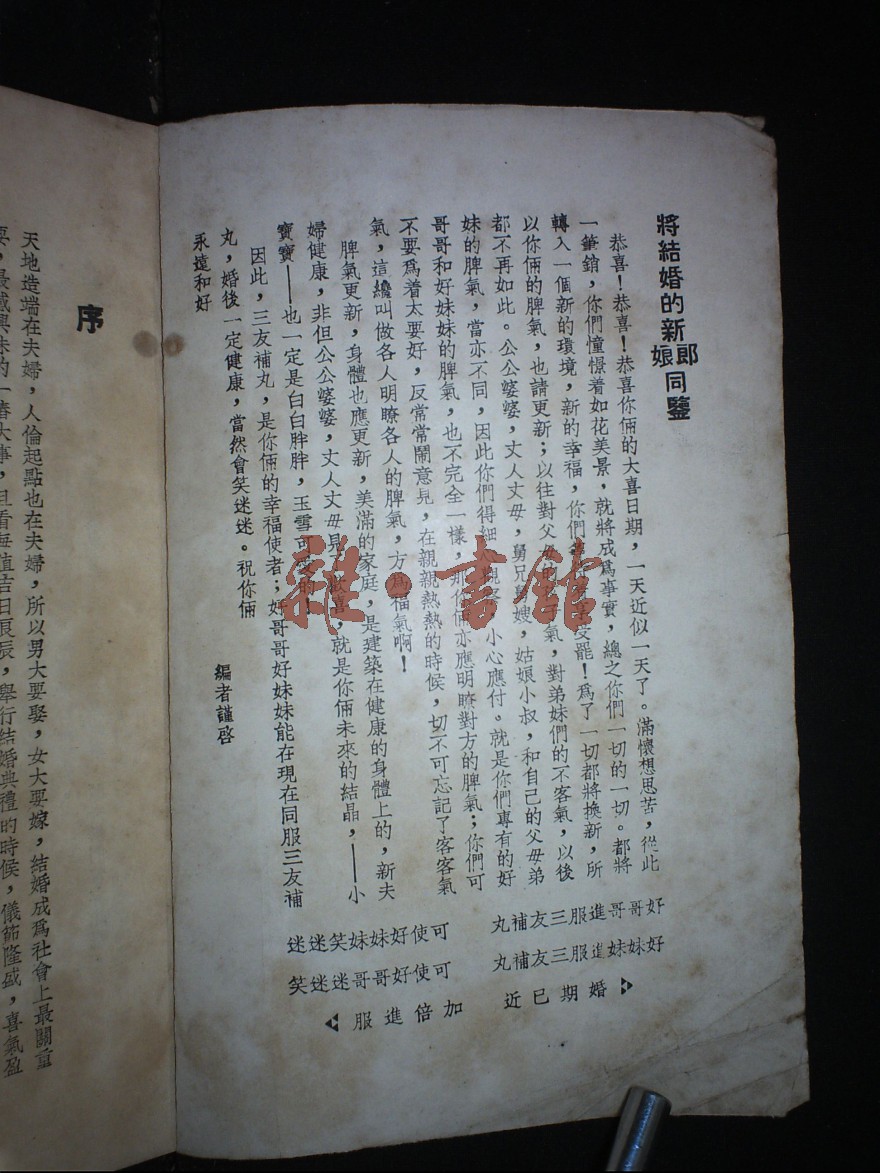 將結婚的新郎娘同鑒
恭喜！恭喜！恭喜你倆的大喜日期，一天近似一天了。滿懷想思苦，從此
一筆銷，你們憧憬着如花美景，就將成爲事實，總之你們一切的一切。都將
轉入一個新的環境，新的幸福，你們 受罷！爲了一切都將換新，所
以你倆的脾氣，也請更新；以往對父母的 氣，對弟妹們的不客氣，以後
都不再如此。公公婆婆，丈人丈母，舅兄 嫂，姑娘小叔，和自己的父母弟
妹的脾氣，當亦不同，因此你們得細 觀察，小心應付。就是你們專有的好
哥哥和好妹妹的脾氣，也不完全一樣，那你倆亦應明瞭對方的脾氣；你們可
不要爲着太要好，反常常鬧意見，在親親熱熱的時候，切不可忘記了客客氣
氣，這纔叫做各人明瞭各人的脾氣，方爲福氣啊！
脾氣更新，身體也應更新，美滿的家庭，是建築在健康的身體上的，新夫
婦健康，非但公公婆婆，丈人丈母見了歡喜，就是你倆未來的結晶，——小
寶寶——也一定是白白胖胖，玉雪可愛的！
因此，三友補丸，是你倆的幸福使者；好哥哥好妹妹能在現在同服三友補
丸，婚後一定健康，當然會笑迷迷。祝你倆
永遠和好
編者謹啓
好哥哥進服三友補丸
可使好妹妹笑迷迷
好妹妹進服三友補丸
可使好哥哥迷迷笑
婚期已近
加倍進服
序
天地造端在夫婦，人倫起點也在夫婦，所以男大要娶，女大要嫁，結婚成爲社會上最關重
要，最感興味的一樁大事，且看每值吉日良辰，舉行結婚典禮的時候，儀節隆盛，喜氣盈